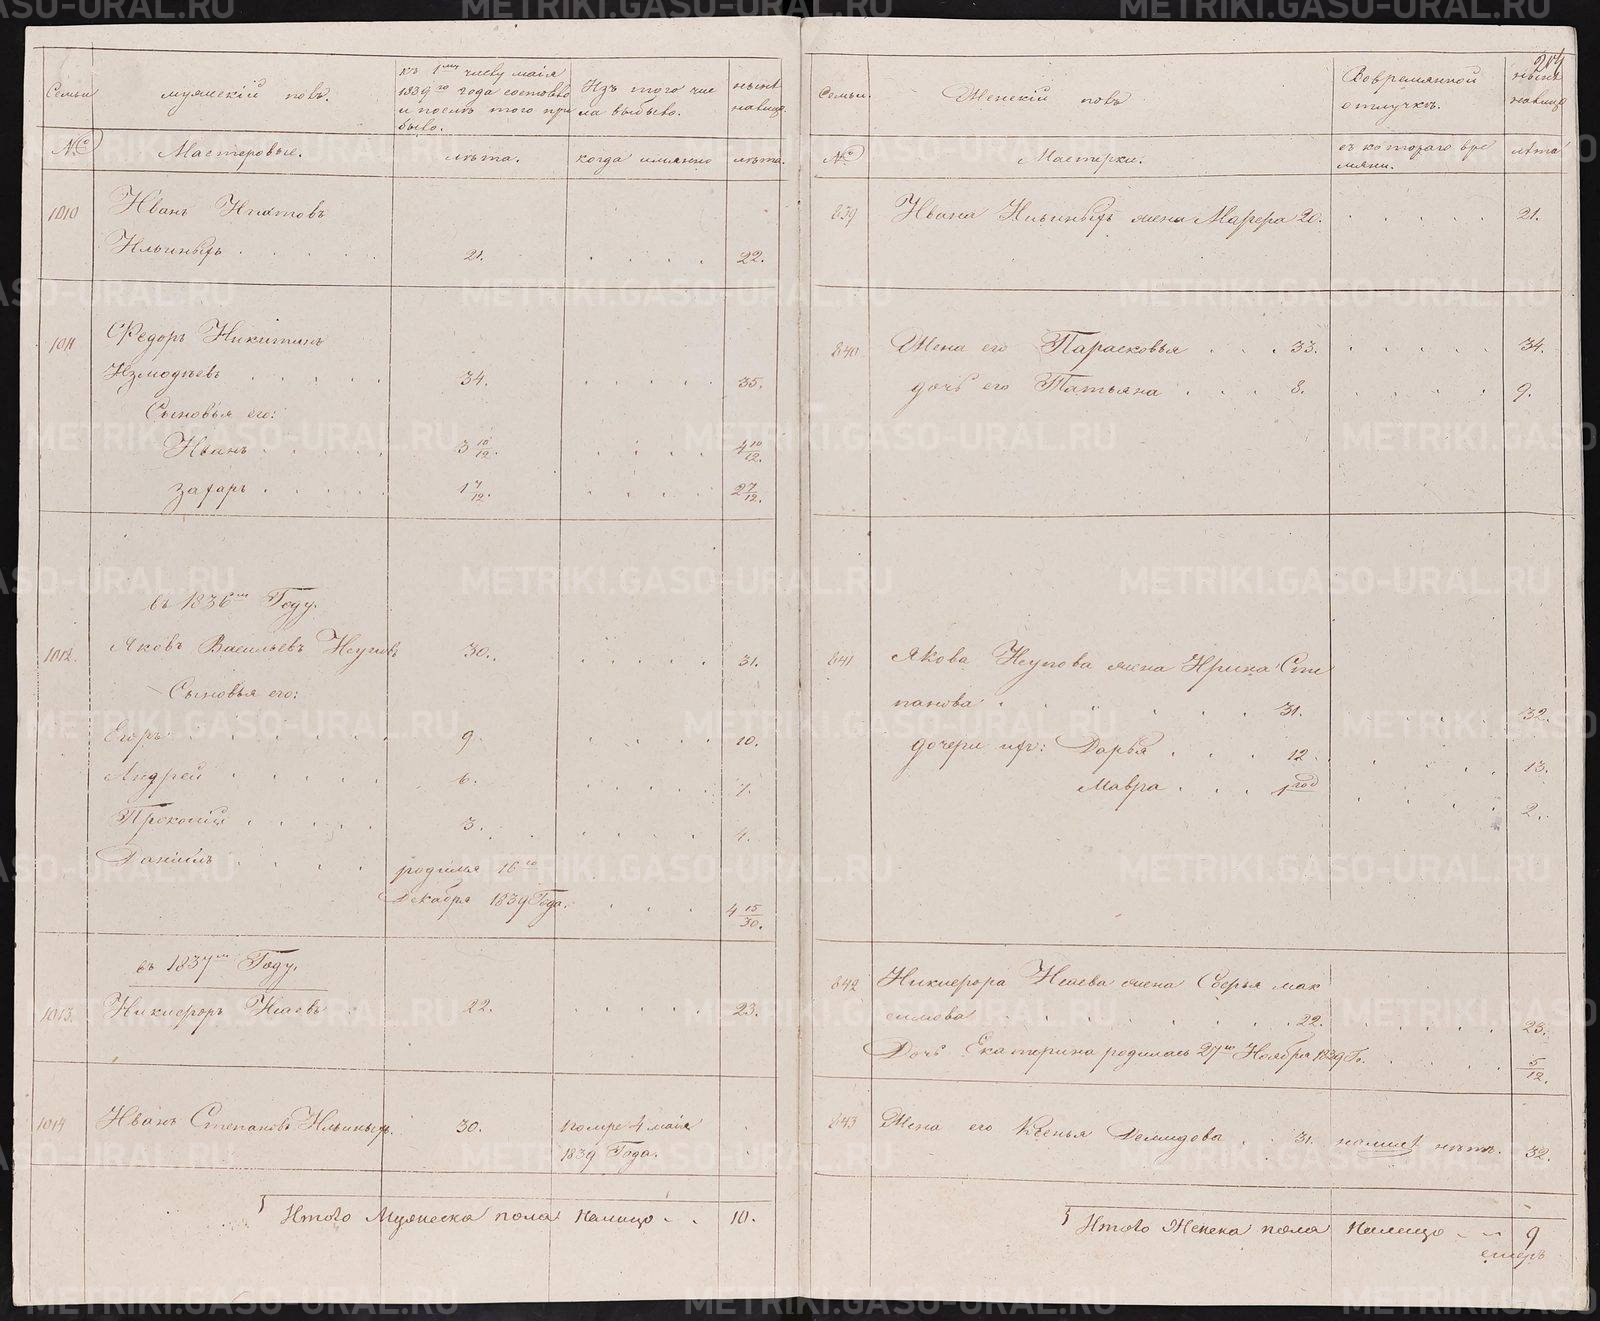 Семьи
мужескій полъ.
къ 1му числу маія
1839го года состояло
и послѣ того при
было.
Изъ того чис
ла выбыло.
нынѣ
налицо.
№
Мастеровые.
лѣта.
когда имянно
лѣта.
1010
Иванъ
Ильиныхъ . . . . . 21. . . . . 22.
1011
Федоръ Никитинъ
Измодѣевъ . . . . . 34. . . . . . 35.
Сыновья его:
Иванъ . . . . . 3 10/12. . . . . 4 10/12.
Захаръ . . . . . 1 7/12. . . . . 2 7/12.
въ 1836мъ Году.
1012.
Яковъ Васильевъ 30. . . . . . 31.
Сыновья его:
Егоръ . . . . . 9. . . . . 10.
Андрей . . . . . 6. . . . . . 7.
Прокопій . . . . . 3. . . . . . 4.
Даніилъ . . . . родился 16го
Декабря 1839 Года. . . . . 4 15/30.
въ 1837мъ Году.
1013.
Никифоръ Исаевъ . 22. . . . . . 23.
1014
Иванъ Степановъ Ильиныхъ. 30. помре 4 маія
1839 Года.
Итого Мужеска пола налицо . . 10.
204
Семьи.
Женскій полъ
Вовремянной
отлучкѣ.
нынѣ
налицо
№
Мастерки.
съ котораго вре
мяни.
лѣта
839
Ивана Ильиныхъ жена Марфа 20. . . . . . 21.
840
Жена его Парасковья . . . 33. . . . . . 34.
дочь его Татьяна . . . 8. . . . . . 9.
841
Якова жена Ирина Сте
панова . . . . . . 31. . . . . 32.
дочери ихъ: Дарья . . . 12. . . . . 13.
Мавра . . . 1 год . . . . 2.
842
Никифора Исаева жена Софья мак
симова . . . . . . . . 22. . . . . . 23.
Дочь Екатерина родилась 27го Ноября 1839 Го. . . . . 5/12.
843
Жена его Ксенья Демидова . . 31. 32.
Итого Женска пола налицо . . 9
METRIKI.GASO-URAL.RU